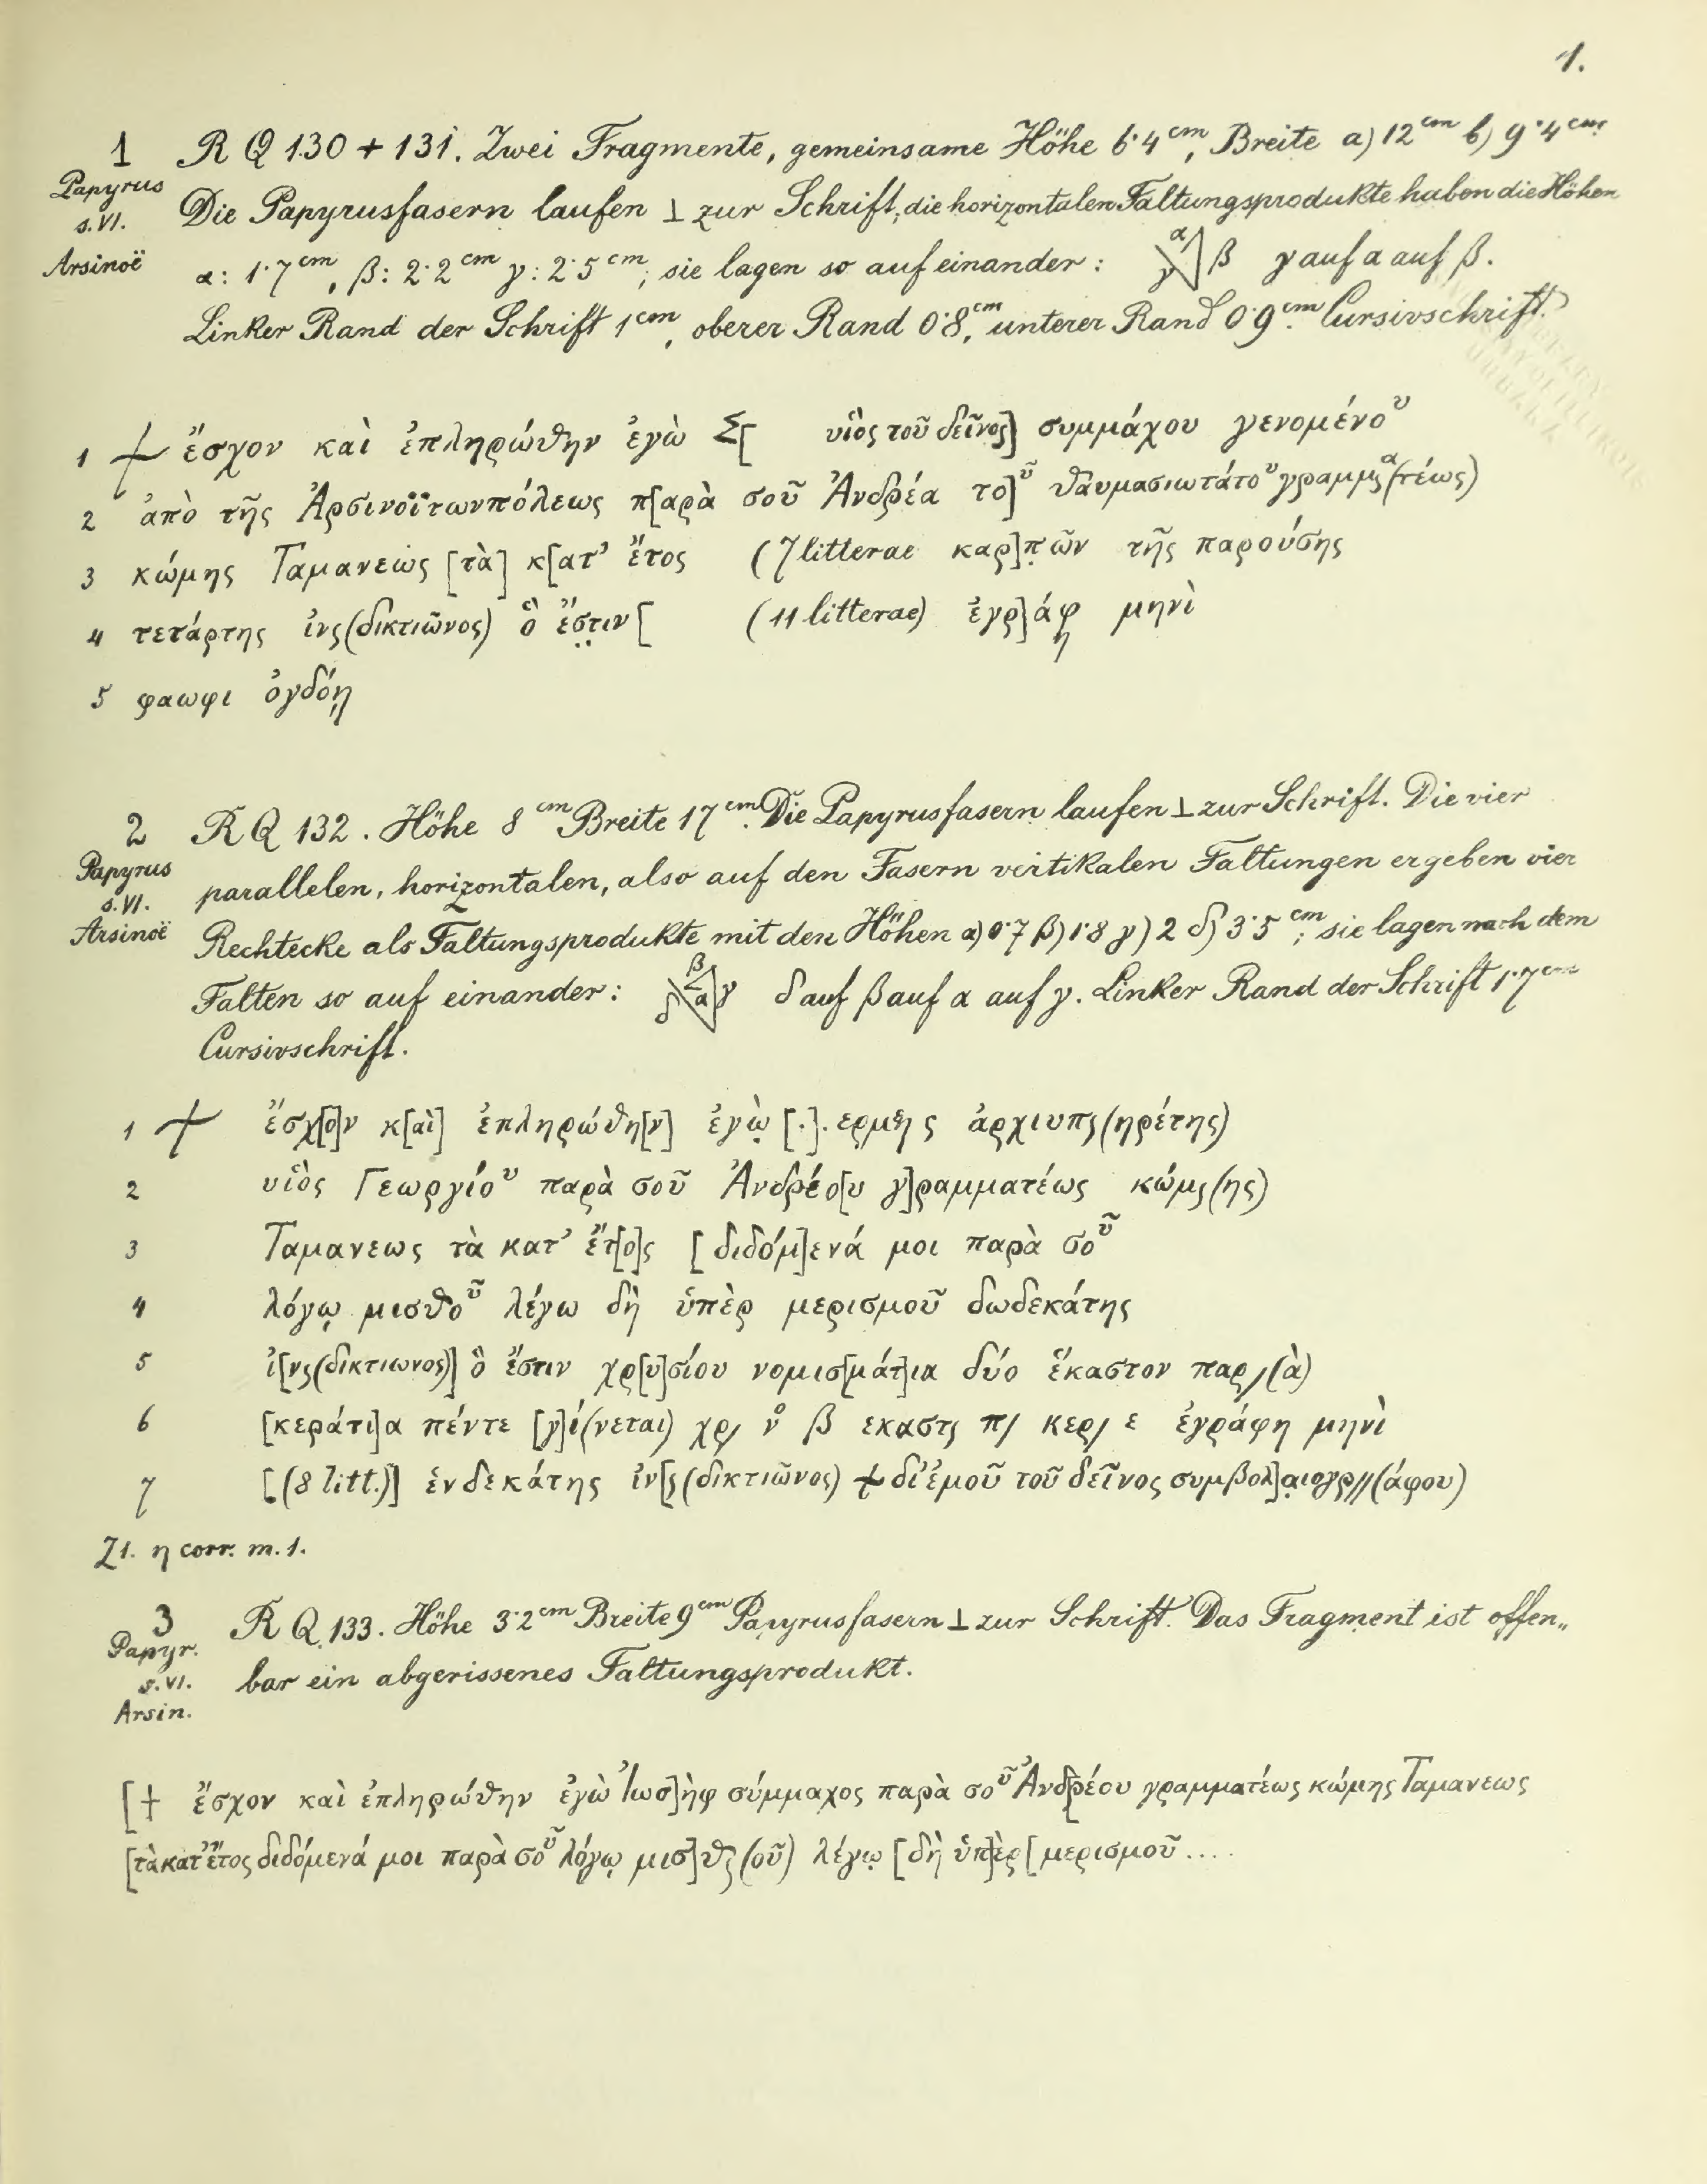 1.
1 R Q 130 + 131. Zwei Fragmente, gemeinsame Höhe 6·4 cm, Breite a) 12 cm b) 9·4 cm
Papyrus s. VI. Arsinoë
Die Papyrusfasern laufen ⊥ zur Schrift, die horizontalen Faltungsprodukte haben die Höhen
α: 1·7 cm, β: 2·2 cm γ: 2·5 cm; sie lagen so auf einander: α γ β γ auf α auf β.
Linker Rand der Schrift 1 cm, oberer Rand 0·8 cm, unterer Rand 0·9 cm. Cursivschrift.
1 ⳨ ἔσχον καὶ ἐπληρώθην ἐγὼ Σ[ υἱὸς τοῦ δεῖνος] συμμάχου γενομένου
2 ἀπὸ τῆς Ἀρσινοϊτωνπόλεως π[αρὰ σοῦ Ἀνδρέα το]ῦ θαυμασιωτάτου γραμμς α(τέως)
3 κώμης Ταμανεως [τὰ] κ[ατ' ἔτος (7 litterae καρ]πῶν τῆς παρούσης
4 τετάρτης ἰνς(δικτιῶνος) ὅ ἔστιν [ (11 litterae) ἐγρ]άφη μηνὶ
5 φαωφι ὀγδόῃ
2 R Q 132. Höhe 8 cm Breite 17 cm. Die Papyrusfasern laufen ⊥ zur Schrift. Die vier
Papyrus s. VI. Arsinoë
parallelen, horizontalen, also auf den Fasern vertikalen Faltungen ergeben vier
Rechtecke als Faltungsprodukte mit den Höhen α) 0·7 β) 1·8 γ) 2 δ) 3·5 cm; sie lagen nach dem
Falten so auf einander: β δ α γ δ auf β auf α auf γ. Linker Rand der Schrift 1·7 cm
Cursivschrift.
1 ⳨ ἔσχ[ο]ν κ[αὶ] ἐπληρώθη[ν] ἐγὼ [.]. ερμης ἀρχιυπς(ηρέτης)
2 υἱὸς Γεωργίου παρὰ σοῦ Ἀνδρέο[υ γ]ραμματέως κώμς(ης)
3 Ταμανεως τὰ κατ' ἔτ[ο]ς [διδόμ]ενά μοι παρὰ σοῦ
4 λόγῳ μισθοῦ λέγω δὴ ὑπὲρ μερισμοῦ δωδεκάτης
5 ἰ[νς(δικτιωνος)] ὅ ἔστιν χρ[υ]σίου νομισ[μάτ]ια δύο ἕκαστον παρ/(ὰ)
6 [κεράτι]α πέντε [γ]ί(νεται) χρ/ ν° β εκαστς π/ κερ/ ε ἐγράφη μηνὶ
7 [(8 litt.)] ἑνδεκάτης ἰν[ς(δικτιῶνος) ⳨ δι' ἐμοῦ τοῦ δεῖνος συμβολ]αιογρ//(άφου)
Z1. η corr. m. 1.
3 R Q 133. Höhe 3·2 cm Breite 9 cm Papyrusfasern ⊥ zur Schrift. Das Fragment ist offen„
Papyr. s. VI. Arsin.
bar ein abgerissenes Faltungsprodukt.
[† ἔσχον καὶ ἐπληρώθην ἐγὼ Ἰωσ]ὴφ σύμμαχος παρὰ σοῦ Ἀνδ[ρέου γραμματέως κώμης Ταμανεως
[τὰ κατ' ἔτος διδόμενά μοι παρὰ σοῦ λόγῳ μισ]θς(οῦ) λέγω [δὴ ὑπ]ὲρ [μερισμοῦ....